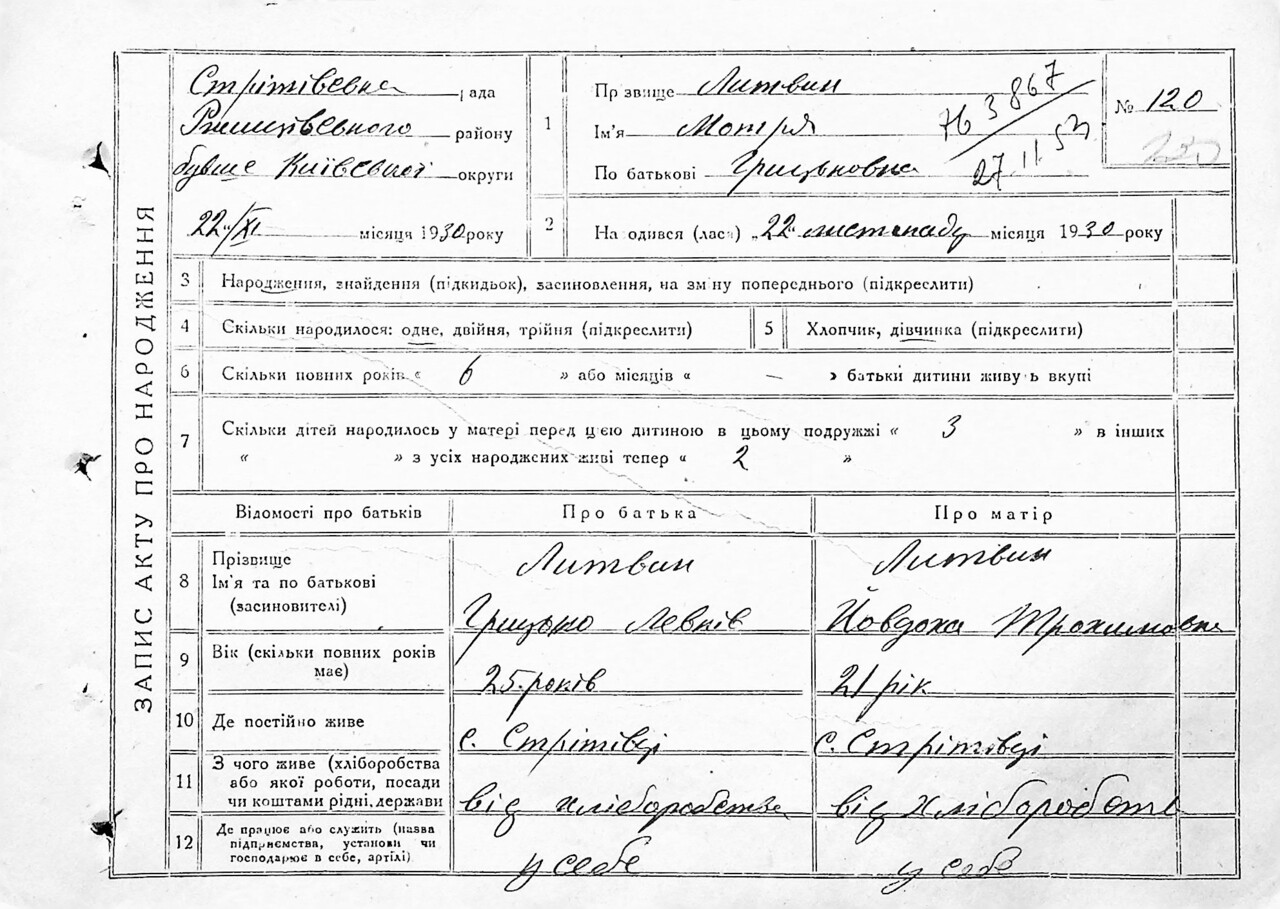 ЗАПИС АКТУ ПРО НАРОДЖЕННЯ
Стрітівська рада
Ржищівського району
бувше Київської округи
22/XI місяця 1930 року
1
Прізвище Литвин
Ім'я Мотря
По батькові Грицьковна
763867
27 11 53
№ 120
2
На одився (лася) „22" листопаду місяця 1930 року
3 Народження, знайдення (підкидьок), засиновлення, на зм ну попереднього (підкреслити)
4 Скільки народилося: одне, двійня, трійня (підкреслити)
5 Хлопчик, дівчинка (підкреслити)
6 Скільки повних років « 6 » або місяців « — » батьки дитини живу ь вкупі
7 Скільки дітей народилось у матері перед цією дитиною в цьому подружжі « 3 » в інших
« » з усіх народжених живі тепер « 2 »
Відомості про батьків Про батька Про матір
8 Прізвище
Ім'я та по батькові
(засиновителі)
Литвин
Грицько Левків
Литвин
Йовдоха Трохимовна
9 Вік (скільки повних років
має)
25 років
21 рік
10 Де постійно живе
с. Стрітівці
с. Стрітівці
11 З чого живе (хліборобства
або якої роботи, посади
чи коштами рідні, держави
від хліборобства
від хліборобств
12 Де працює або служить (назва
підприємства, установи чи
господарює в себе, артілі)
у себе
у себе